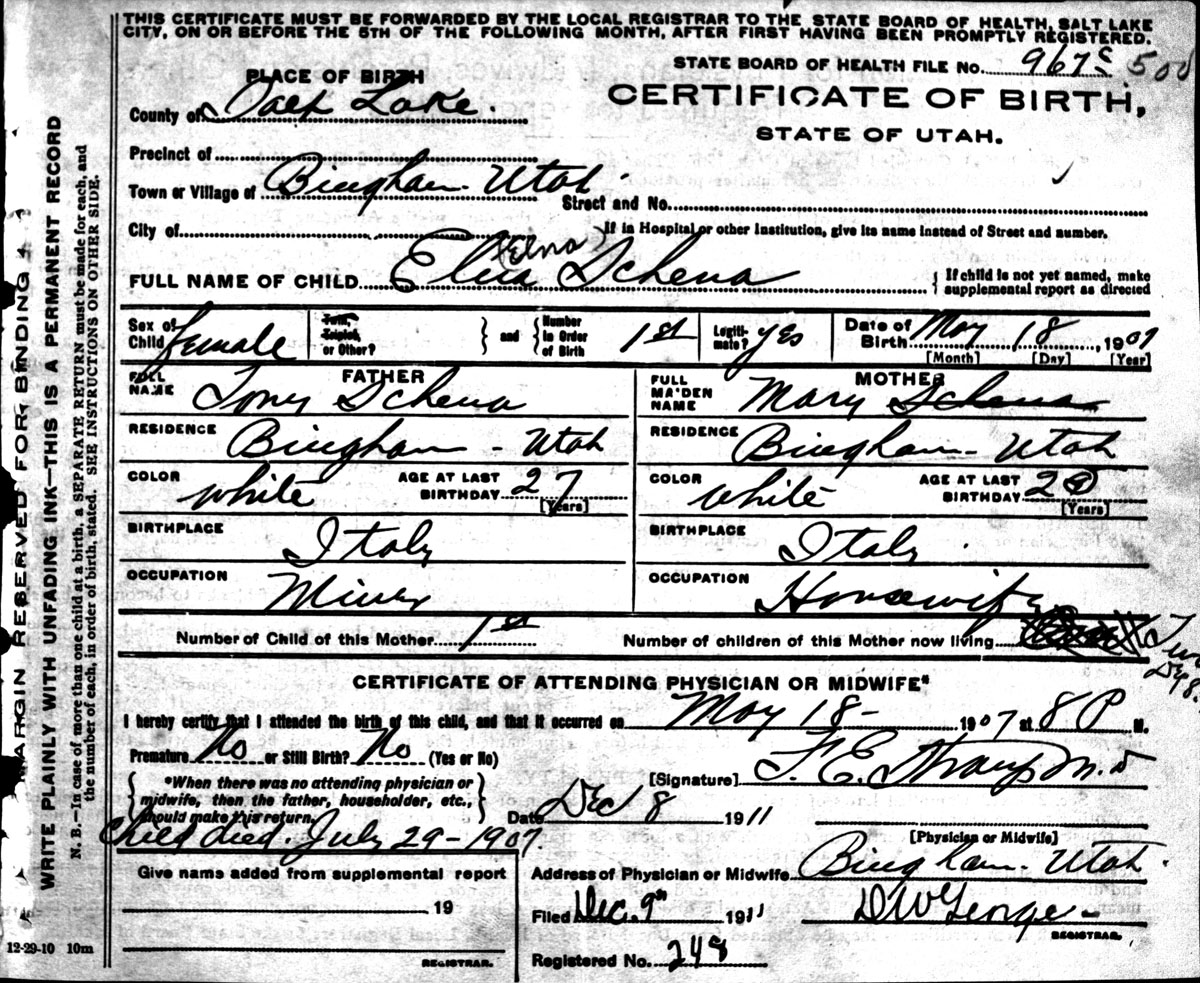 THIS CERTIFICATE MUST BE FORWARDED BY THE LOCAL REGISTRAR TO THE STATE BOARD OF HEALTH, SALT LAKE
CITY, ON OR BEFORE THE 5TH OF THE FOLLOWING MONTH, AFTER FIRST HAVING BEEN PROMPTLY REGISTERED.
STATE BOARD OF HEALTH FILE No. 967S 500
PLACE OF BIRTH
CERTIFICATE OF BIRTH,
STATE OF UTAH.
County of Salt Lake.
Precinct of
Town or Village of Bingham Utah.
Street and No.
City of
If in Hospital or other Institution, give its name instead of Street and number.
(Elna)
FULL NAME OF CHILD Elna Schena
If child is not yet named, make supplemental report as directed
Sex of Child female
Twin, Triplet, or Other?
and
Number in Order of Birth 1st
Legitimate? yes
Date of Birth May 18, 1907
[Month] [Day] [Year]
FATHER
FULL NAME Tony Schena
MOTHER
FULL MAIDEN NAME Mary Schena
RESIDENCE Bingham - Utah
RESIDENCE Bingham - Utah
COLOR white AGE AT LAST BIRTHDAY 27 [Years]
COLOR white AGE AT LAST BIRTHDAY 20 [Years]
BIRTHPLACE Italy
BIRTHPLACE Italy.
OCCUPATION Miner
OCCUPATION Housewife
Number of Child of this Mother 1st
Number of children of this Mother now living Two
CERTIFICATE OF ATTENDING PHYSICIAN OR MIDWIFE*
I hereby certify that I attended the birth of this child, and that it occurred on May 18- 1907 at 8 P M.
Premature No or Still Birth? No (Yes or No)
*When there was no attending physician or
midwife, then the father, householder, etc.,
should make this return.
[Signature] F. E. Straup M.D
Date Dec 8 1911
[Physician or Midwife]
Child died. July 29-1907.
Give name added from supplemental report
19
REGISTRAR.
Address of Physician or Midwife Bingham. Utah.
Filed Dec. 9th 1911 D W George -
REGISTRAR.
Registered No. 248
MARGIN RESERVED FOR BINDING
WRITE PLAINLY WITH UNFADING INK—THIS IS A PERMANENT RECORD
N. B.—In case of more than one child at a birth, a SEPARATE RETURN must be made for each, and
the number of each, in order of birth, stated. SEE INSTRUCTIONS ON OTHER SIDE.
12-29-10 10m